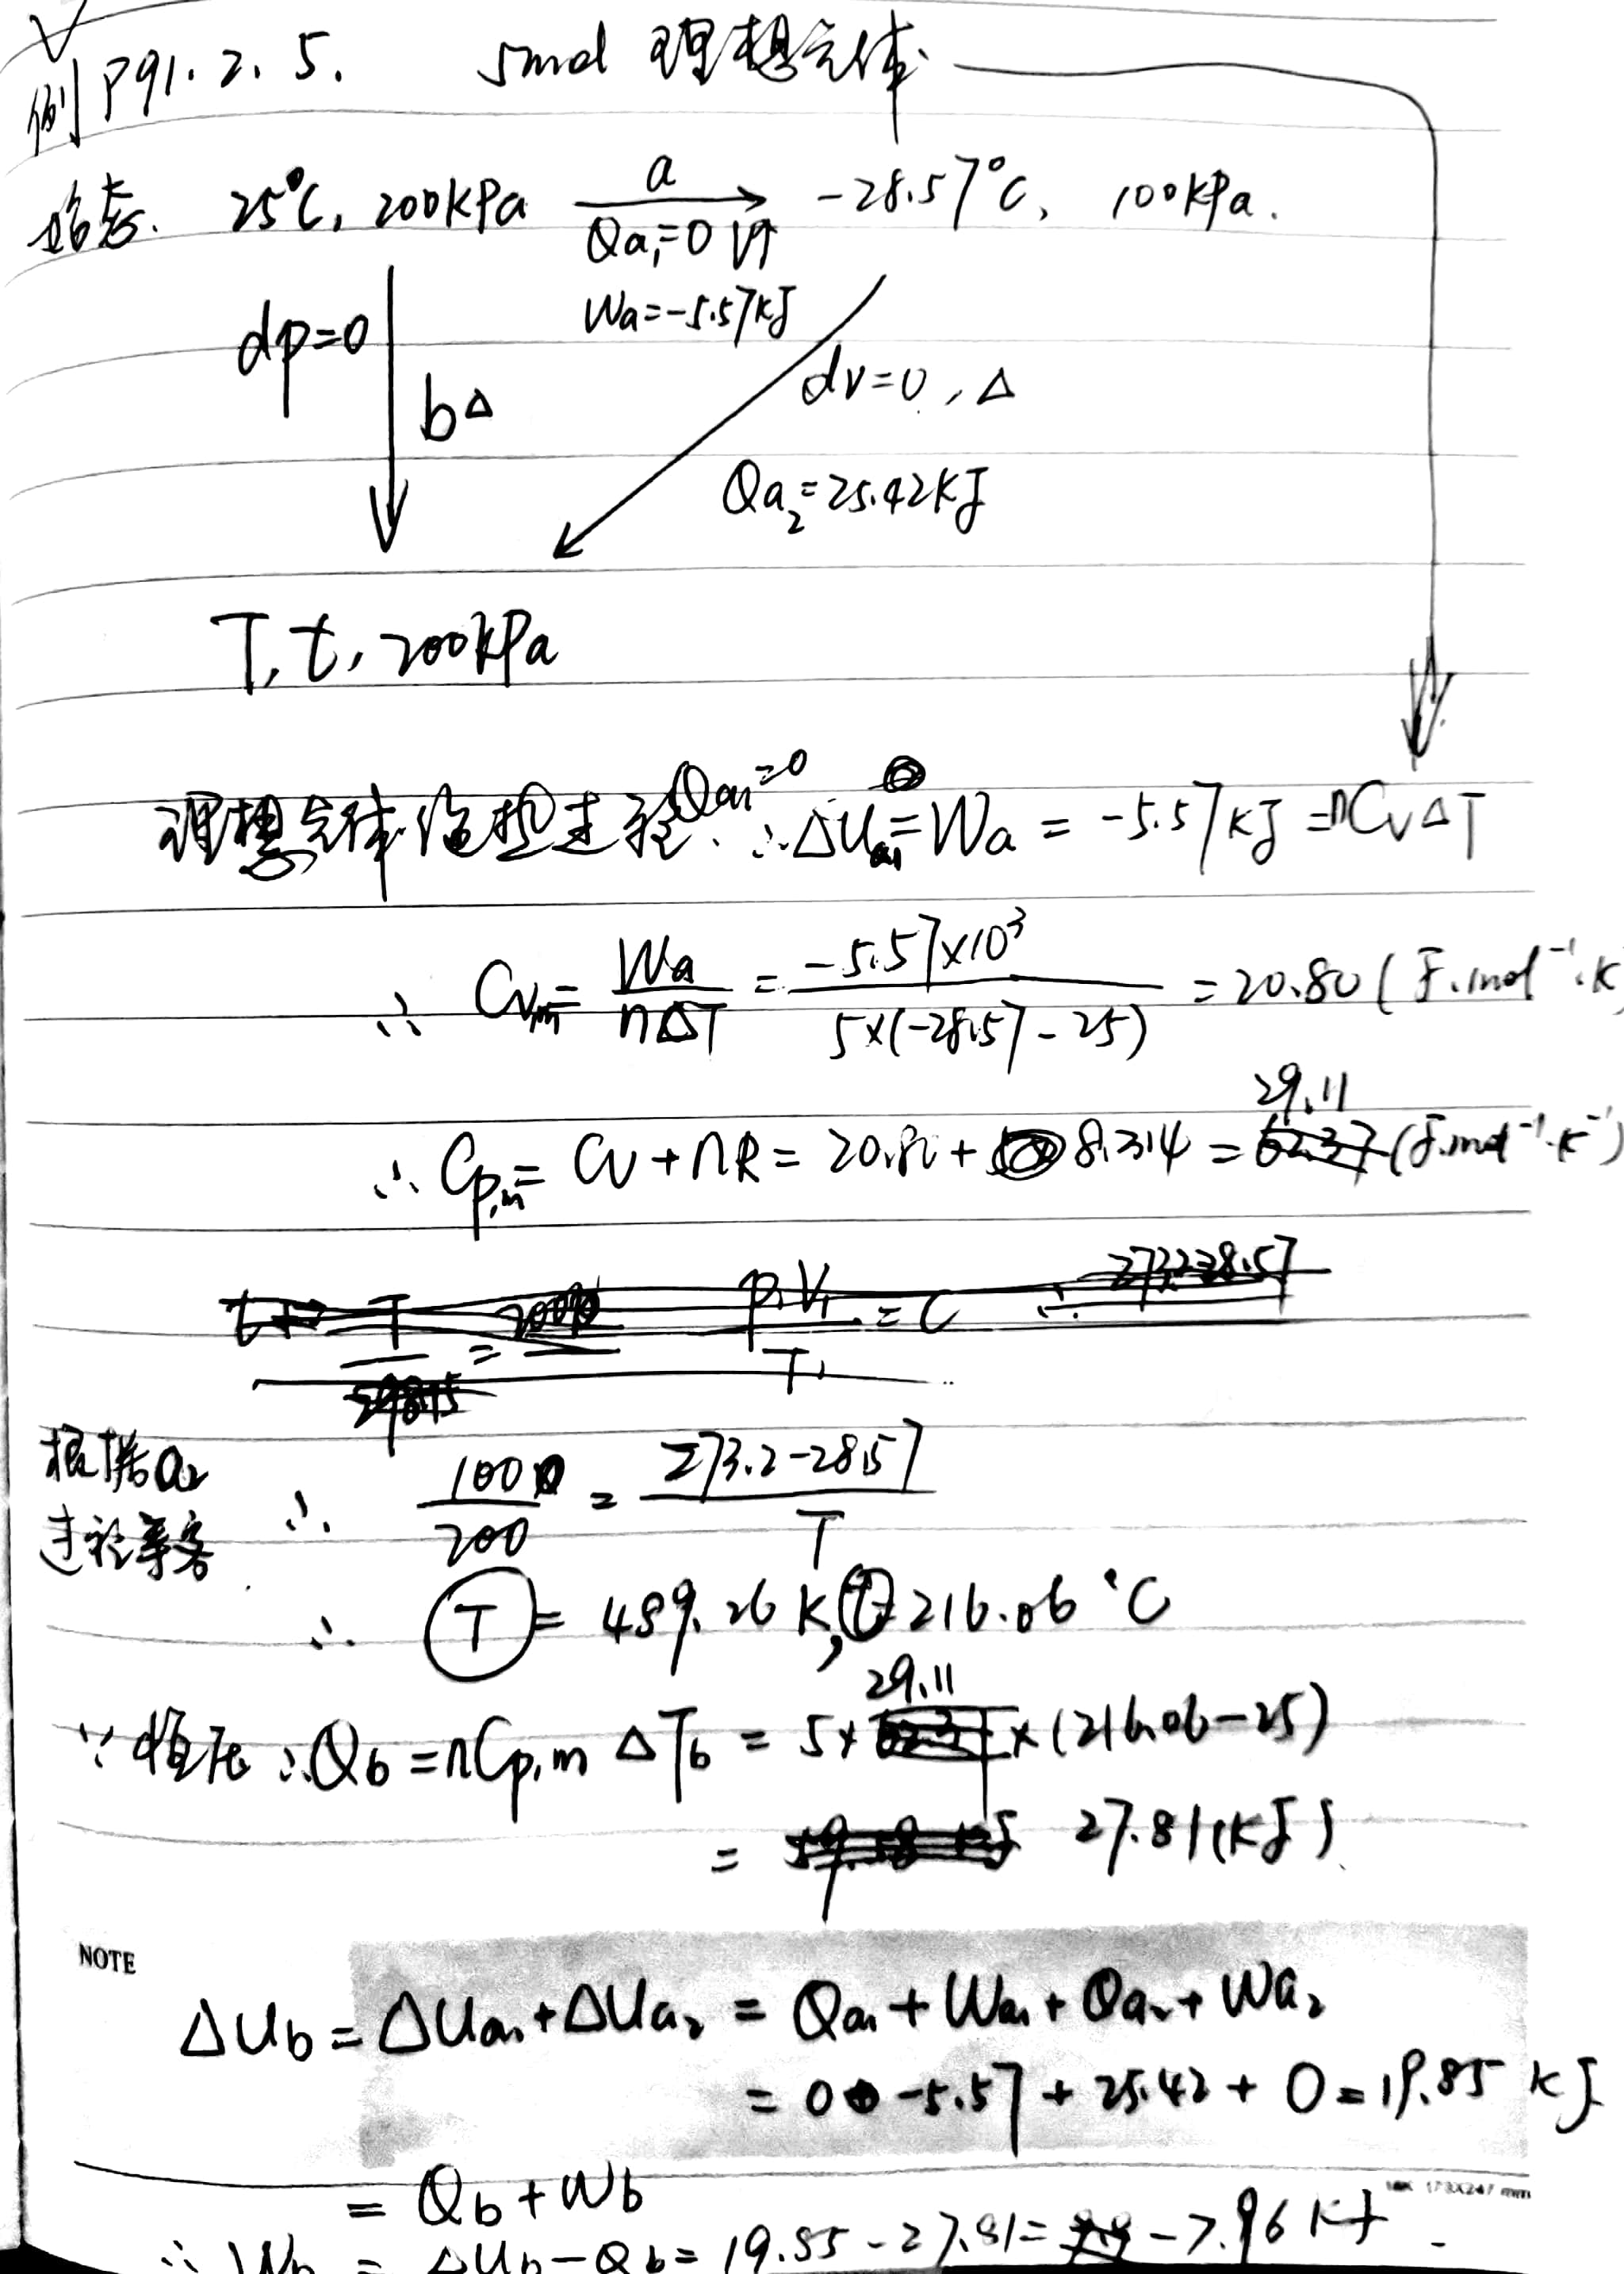 例 P91. 2. 5. 5mol 理想气体.
始态. 25℃, 200kPa a -28.57℃, 100kPa.
Qa₁=0 V↑
Wa=-5.57kJ
dp=0
dV=0, Δ
bΔ
Qa₂=25.42kJ
T, t, 200kPa
理想气体 绝热过程 Qa₁=0 ∴ΔUa₁=Wa = -5.57kJ =nCvΔT
∴ Cv,m= Wa/nΔT = -5.57×10³/5×(-28.57-25) = 20.80 (J.mol⁻¹.K
∴ Cp,m= Cv+nR = 20.80+8.314 = 29.11 (J.mol⁻¹.K⁻¹)
p₁V₁/T₁ = C
根据a₂
过程等容 ∴ 100/200 = 273.2-28.57/T
∴ T = 489.26 K, t=216.06 ℃
∵恒压 ∴Qb=nCp,m ΔTb = 5×29.11×(216.06-25)
= 27.81(kJ)
NOTE
ΔUb=ΔUa₁+ΔUa₂ = Qa₁+Wa₁+Qa₂+Wa₂
= 0 -5.57 + 25.42 + 0 = 19.85 kJ
= Qb+Wb
16K 173X247 mm
∴ Wb = ΔUb-Qb= 19.85-27.81= -7.96 kJ.